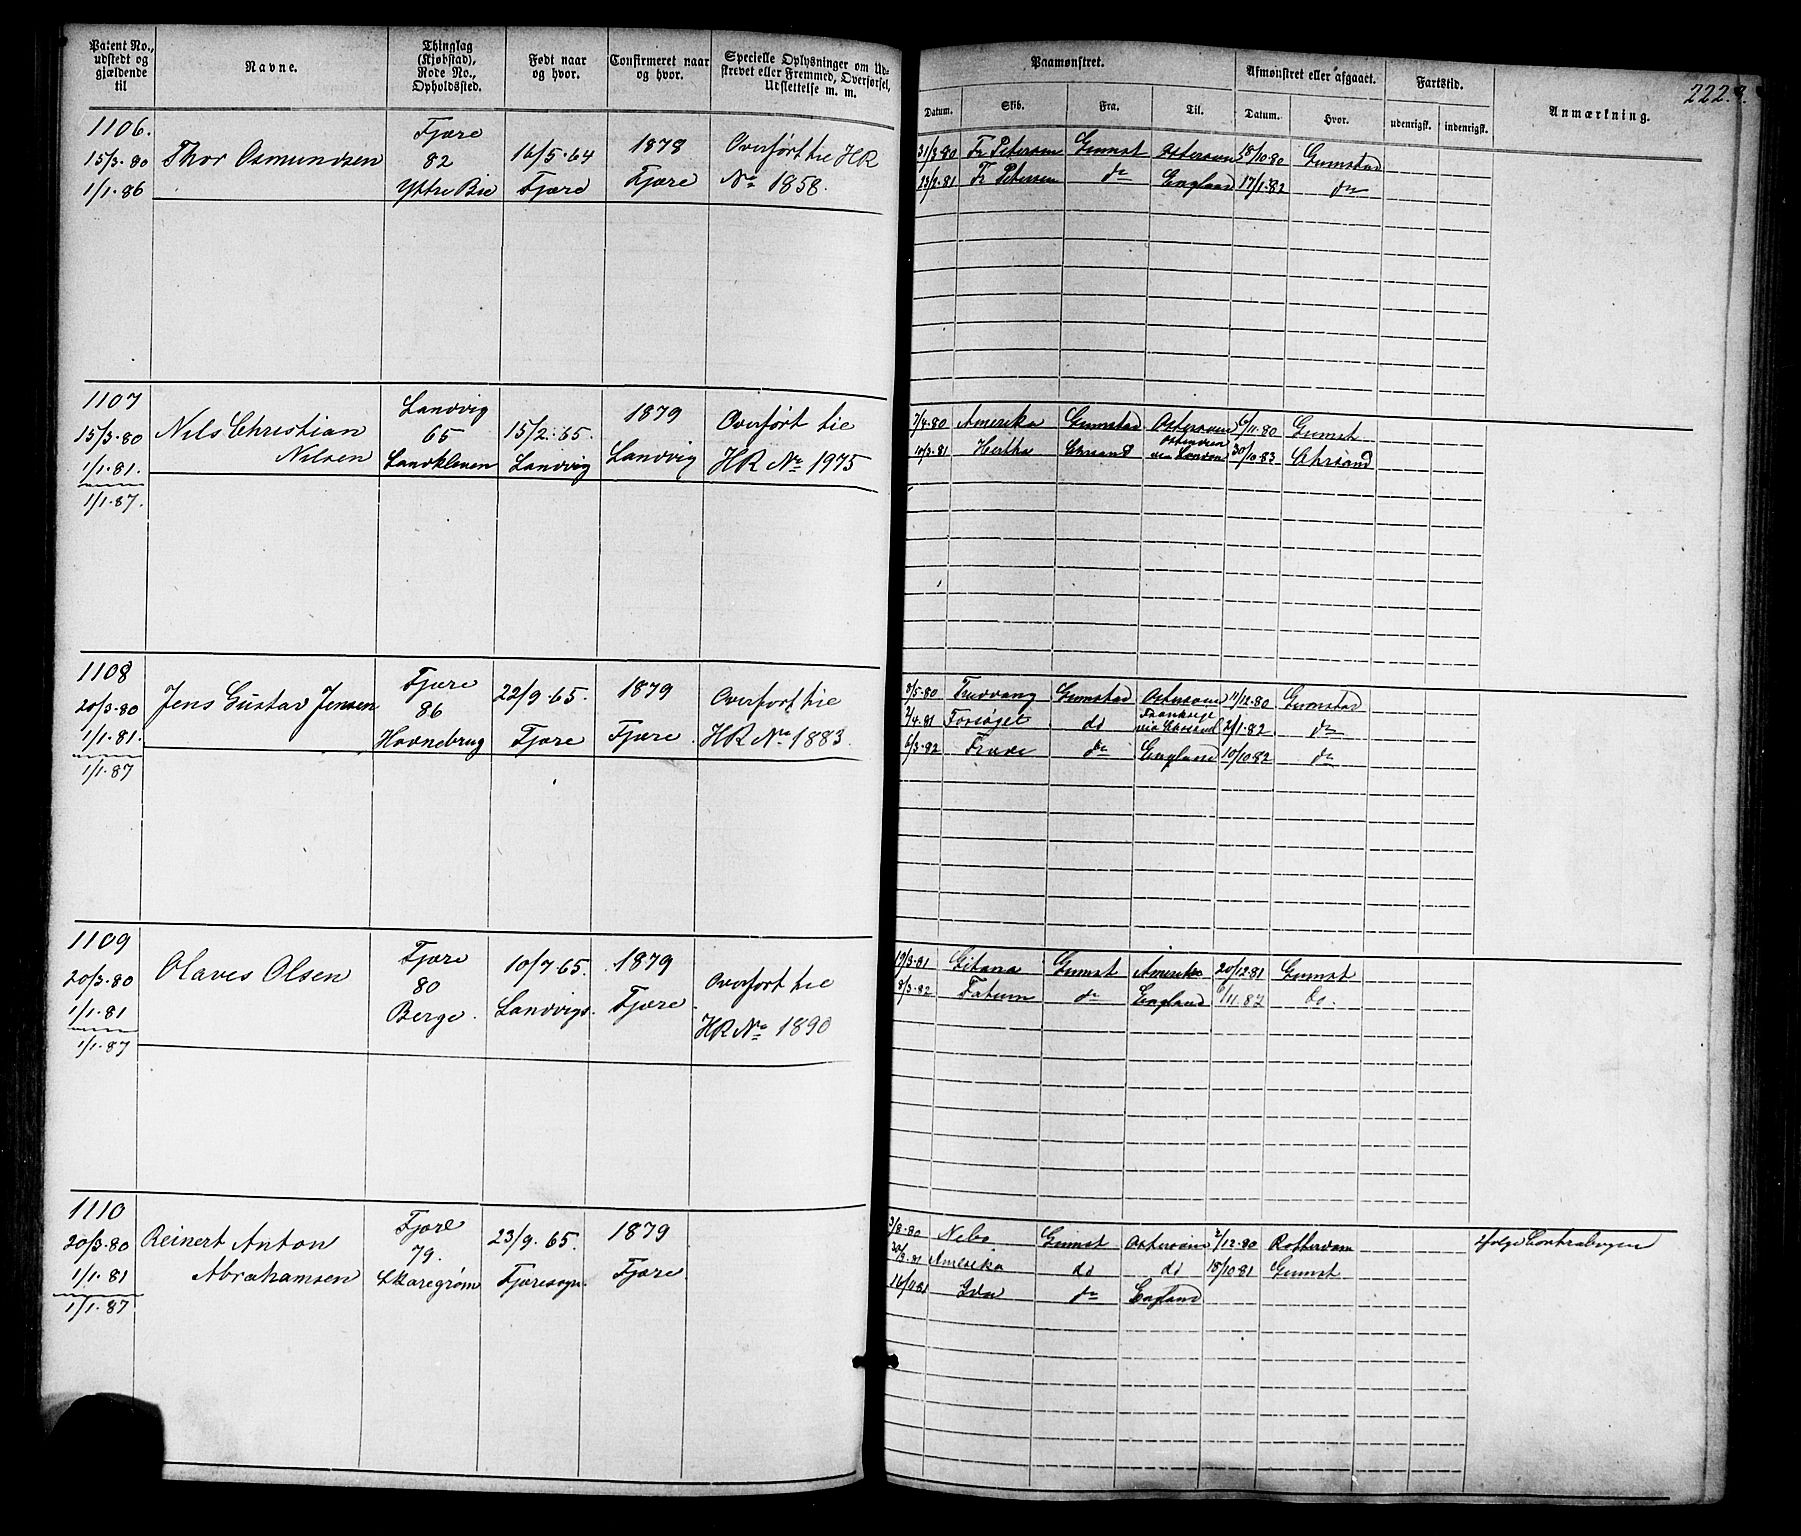 Patent No.,
udstedt og
gjældende
til
Navne.
Thinglag
(Kjøbstad),
Rode No.,
Opholdssted.
Født naar
og hvor.
Confirmeret naar
og hvor.
Specielle Oplysninger om Ud-
skrevet eller Fremmed, Overførsel,
Udslettelse m. m.
Paamønstret.
Datum.
Skib.
Fra.
Til.
Afmønstret eller afgaaet.
Datum.
Hvor.
Fartstid.
udenrigsk.
indenrigsk.
Anmærkning.
222.
1106.
15/3.80
1/1.86
Thor Osmundsen
Fjære
82
Yttre Bie
16/5.64
Fjære
1878
Fjære
Overført til HR
No 1858.
31/3.80 Fr Petersen Grmst Østersøen 18/10.80 Grmstad
23/2.81 Fr Petersen do England 17/1.82 do
1107
15/3.80
1/1.81.
1/1.87.
Nils Christian
Nilsen
Landvig
65
Landkleven
15/2.65.
Landvig
1879
Landvig
Overført til
HR No 1975
7/4.80 Amerika Grmstad Østersøen 6/11.80 Grmst
10/3.81 Hertha Chrsand Østersøen via London 30/10.83 Chrsand
1108
20/3.80
1/1.81.
1/1.87
Jens Gustav Jensen
Fjære
86
Havnebrug
22/9.65.
Fjære
1879
Fjære.
Overført til
HR No 1883.
8/5.80 Grmstad Østersøen 11/12.80 Grmstad
2/4.81 Forsøget do Frankrige via Chrsand 2/1.82 do
6/3.82 do England 10/10.82 do
1109
20/3.80
1/1.81
1/1.87
Olaves Olsen
Fjære
80
Berge.
10/7.65.
Landvigs.
1879
Fjære
Overført til
HR No 1890
19/3.81 Gitana Grmst Amerika 20/12.81 Grmst
8/3.82 Fatum do England 6/11.82 do.
1110
20/3.80
1/1.81
1/1.87
Reinert Anton
Abrahamsen
Fjære
79.
Skaregrøm
23/9.65.
Fjæresogn
1879
Fjære.
3/8.80 Nebo Grmst Østersøen 2/12.80 Rotterdam
30/3.81 Amerika do do 18/10.81 Grmst
16/11.81 Ida do England